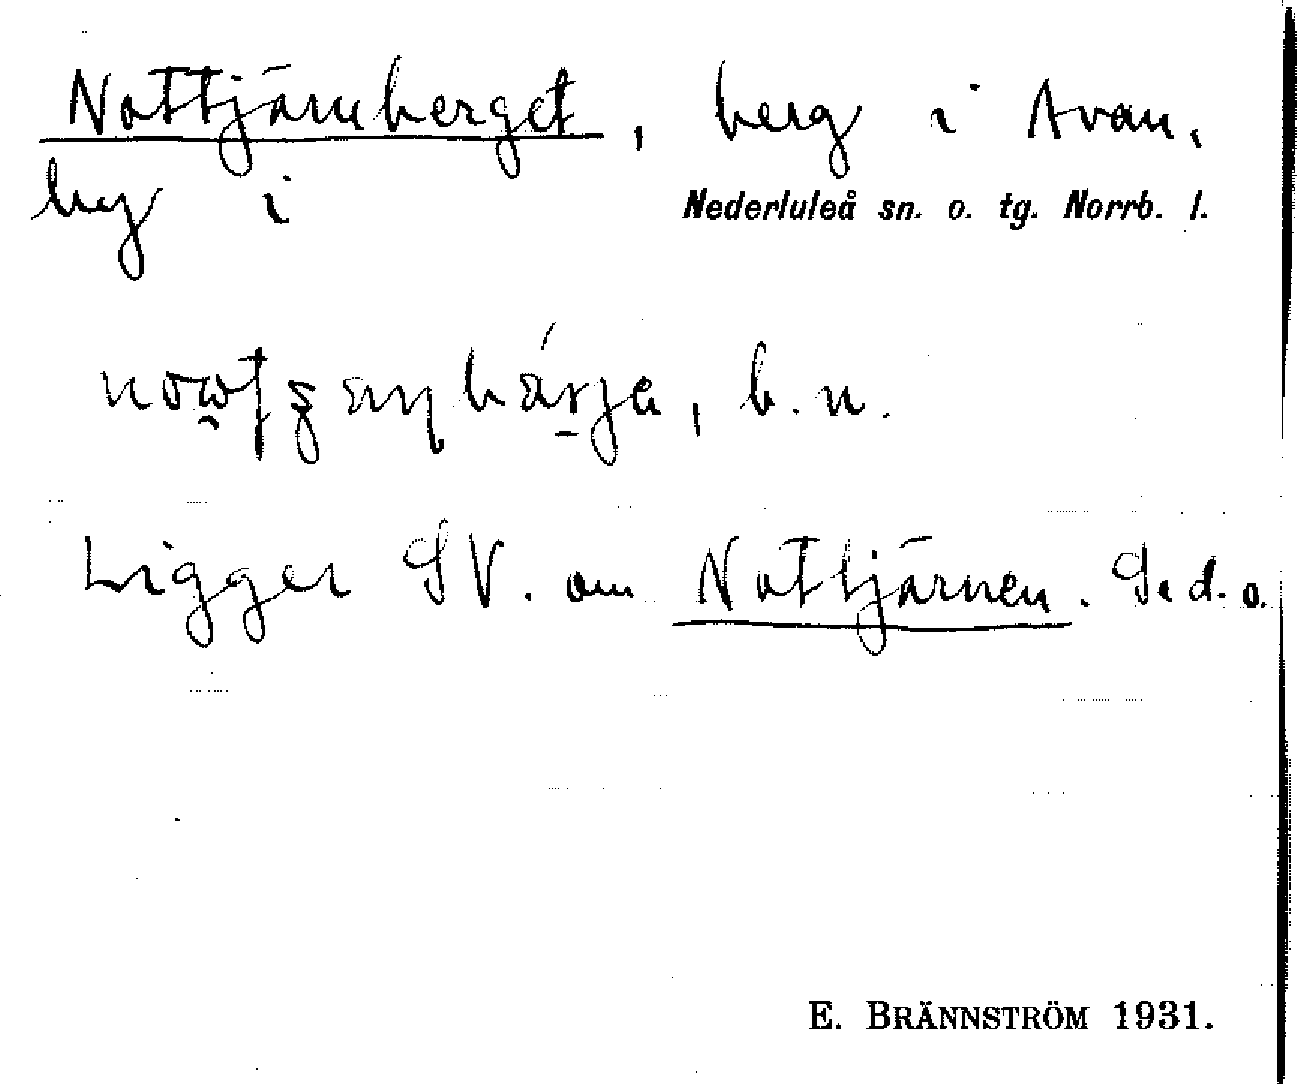 Nattjärnberget, berg i Avan,
by i Nederluleå sn. o. tg. Norrb. l.
b. n.
Ligger SV. om Nattjärnen. Se d. o.
E. BRÄNNSTRÖM 1931.